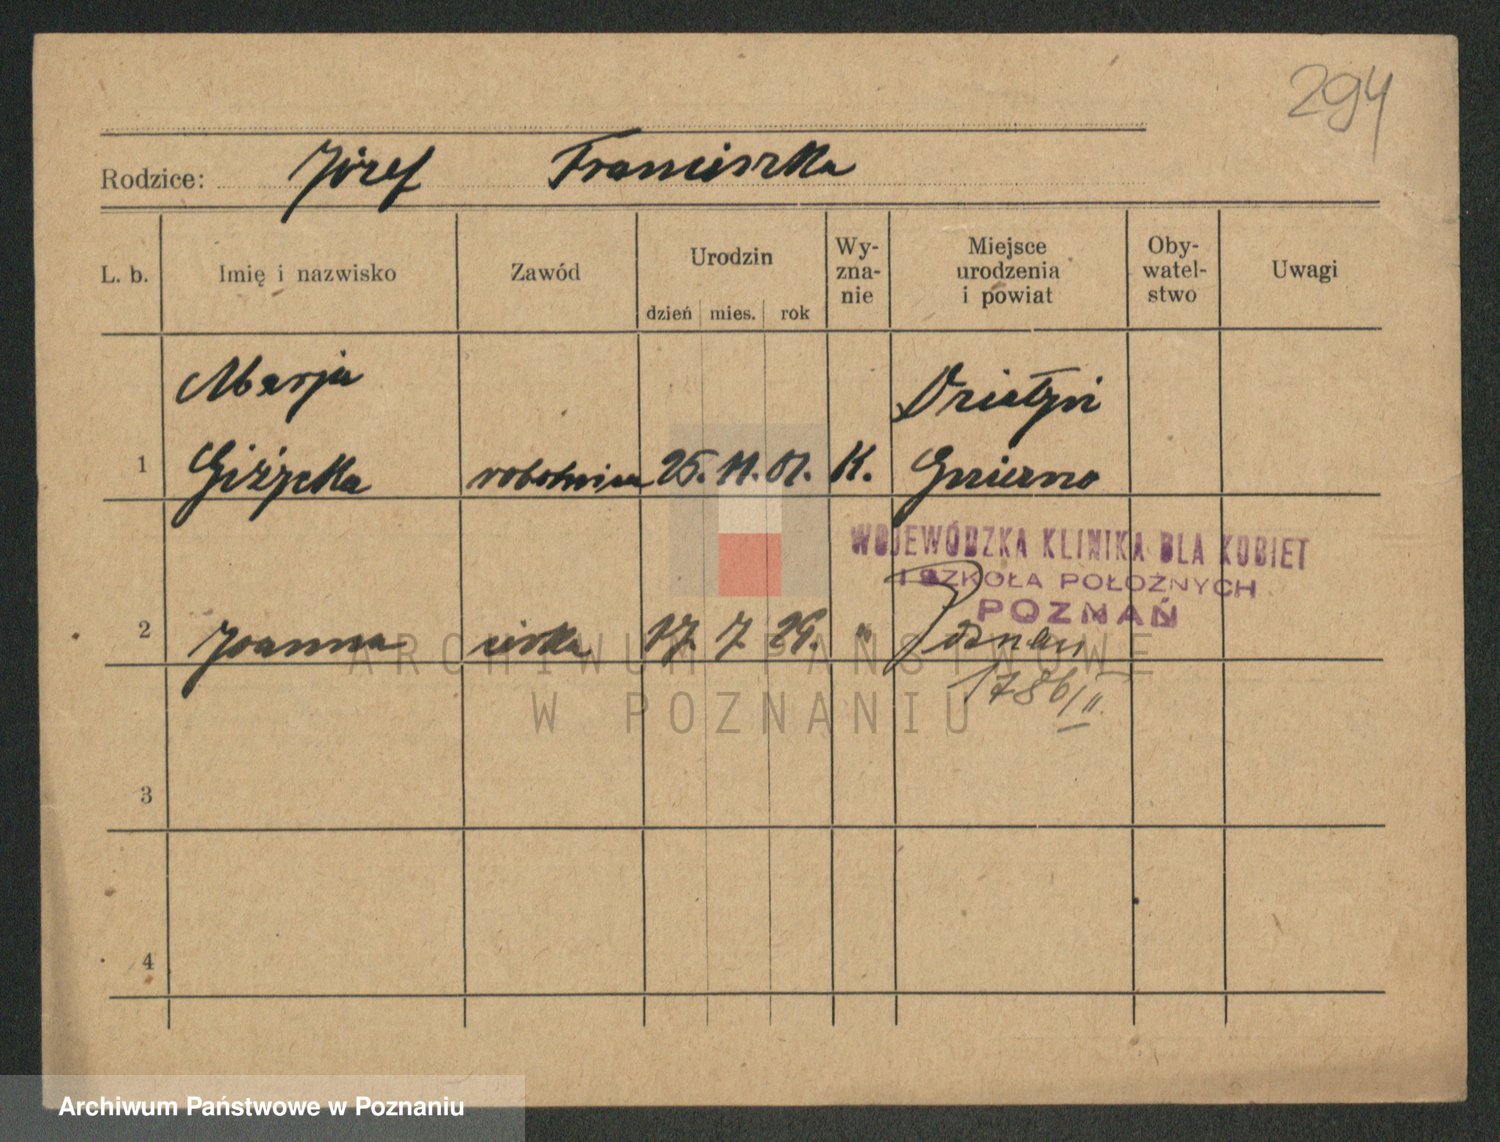 294
Rodzice: Józef Franciszka
L. b. Imię i nazwisko Zawód Urodzin dzień mies. rok Wy-zna-nie Miejsce urodzenia i powiat Oby-watel-stwo Uwagi
Marja Dziełyń
1 Giżycka robotnica 25. 11. 01. K. Gniezno
WOJEWÓDZKA KLINIKA DLA KOBIET
I SZKOŁA POŁOŻNYCH
POZNAŃ
2 Joanna córka 17. 7. 26. " Poznań
1786/II.
3
4
ARCHIWUM PAŃSTWOWE
W POZNANIU
Archiwum Państwowe w Poznaniu